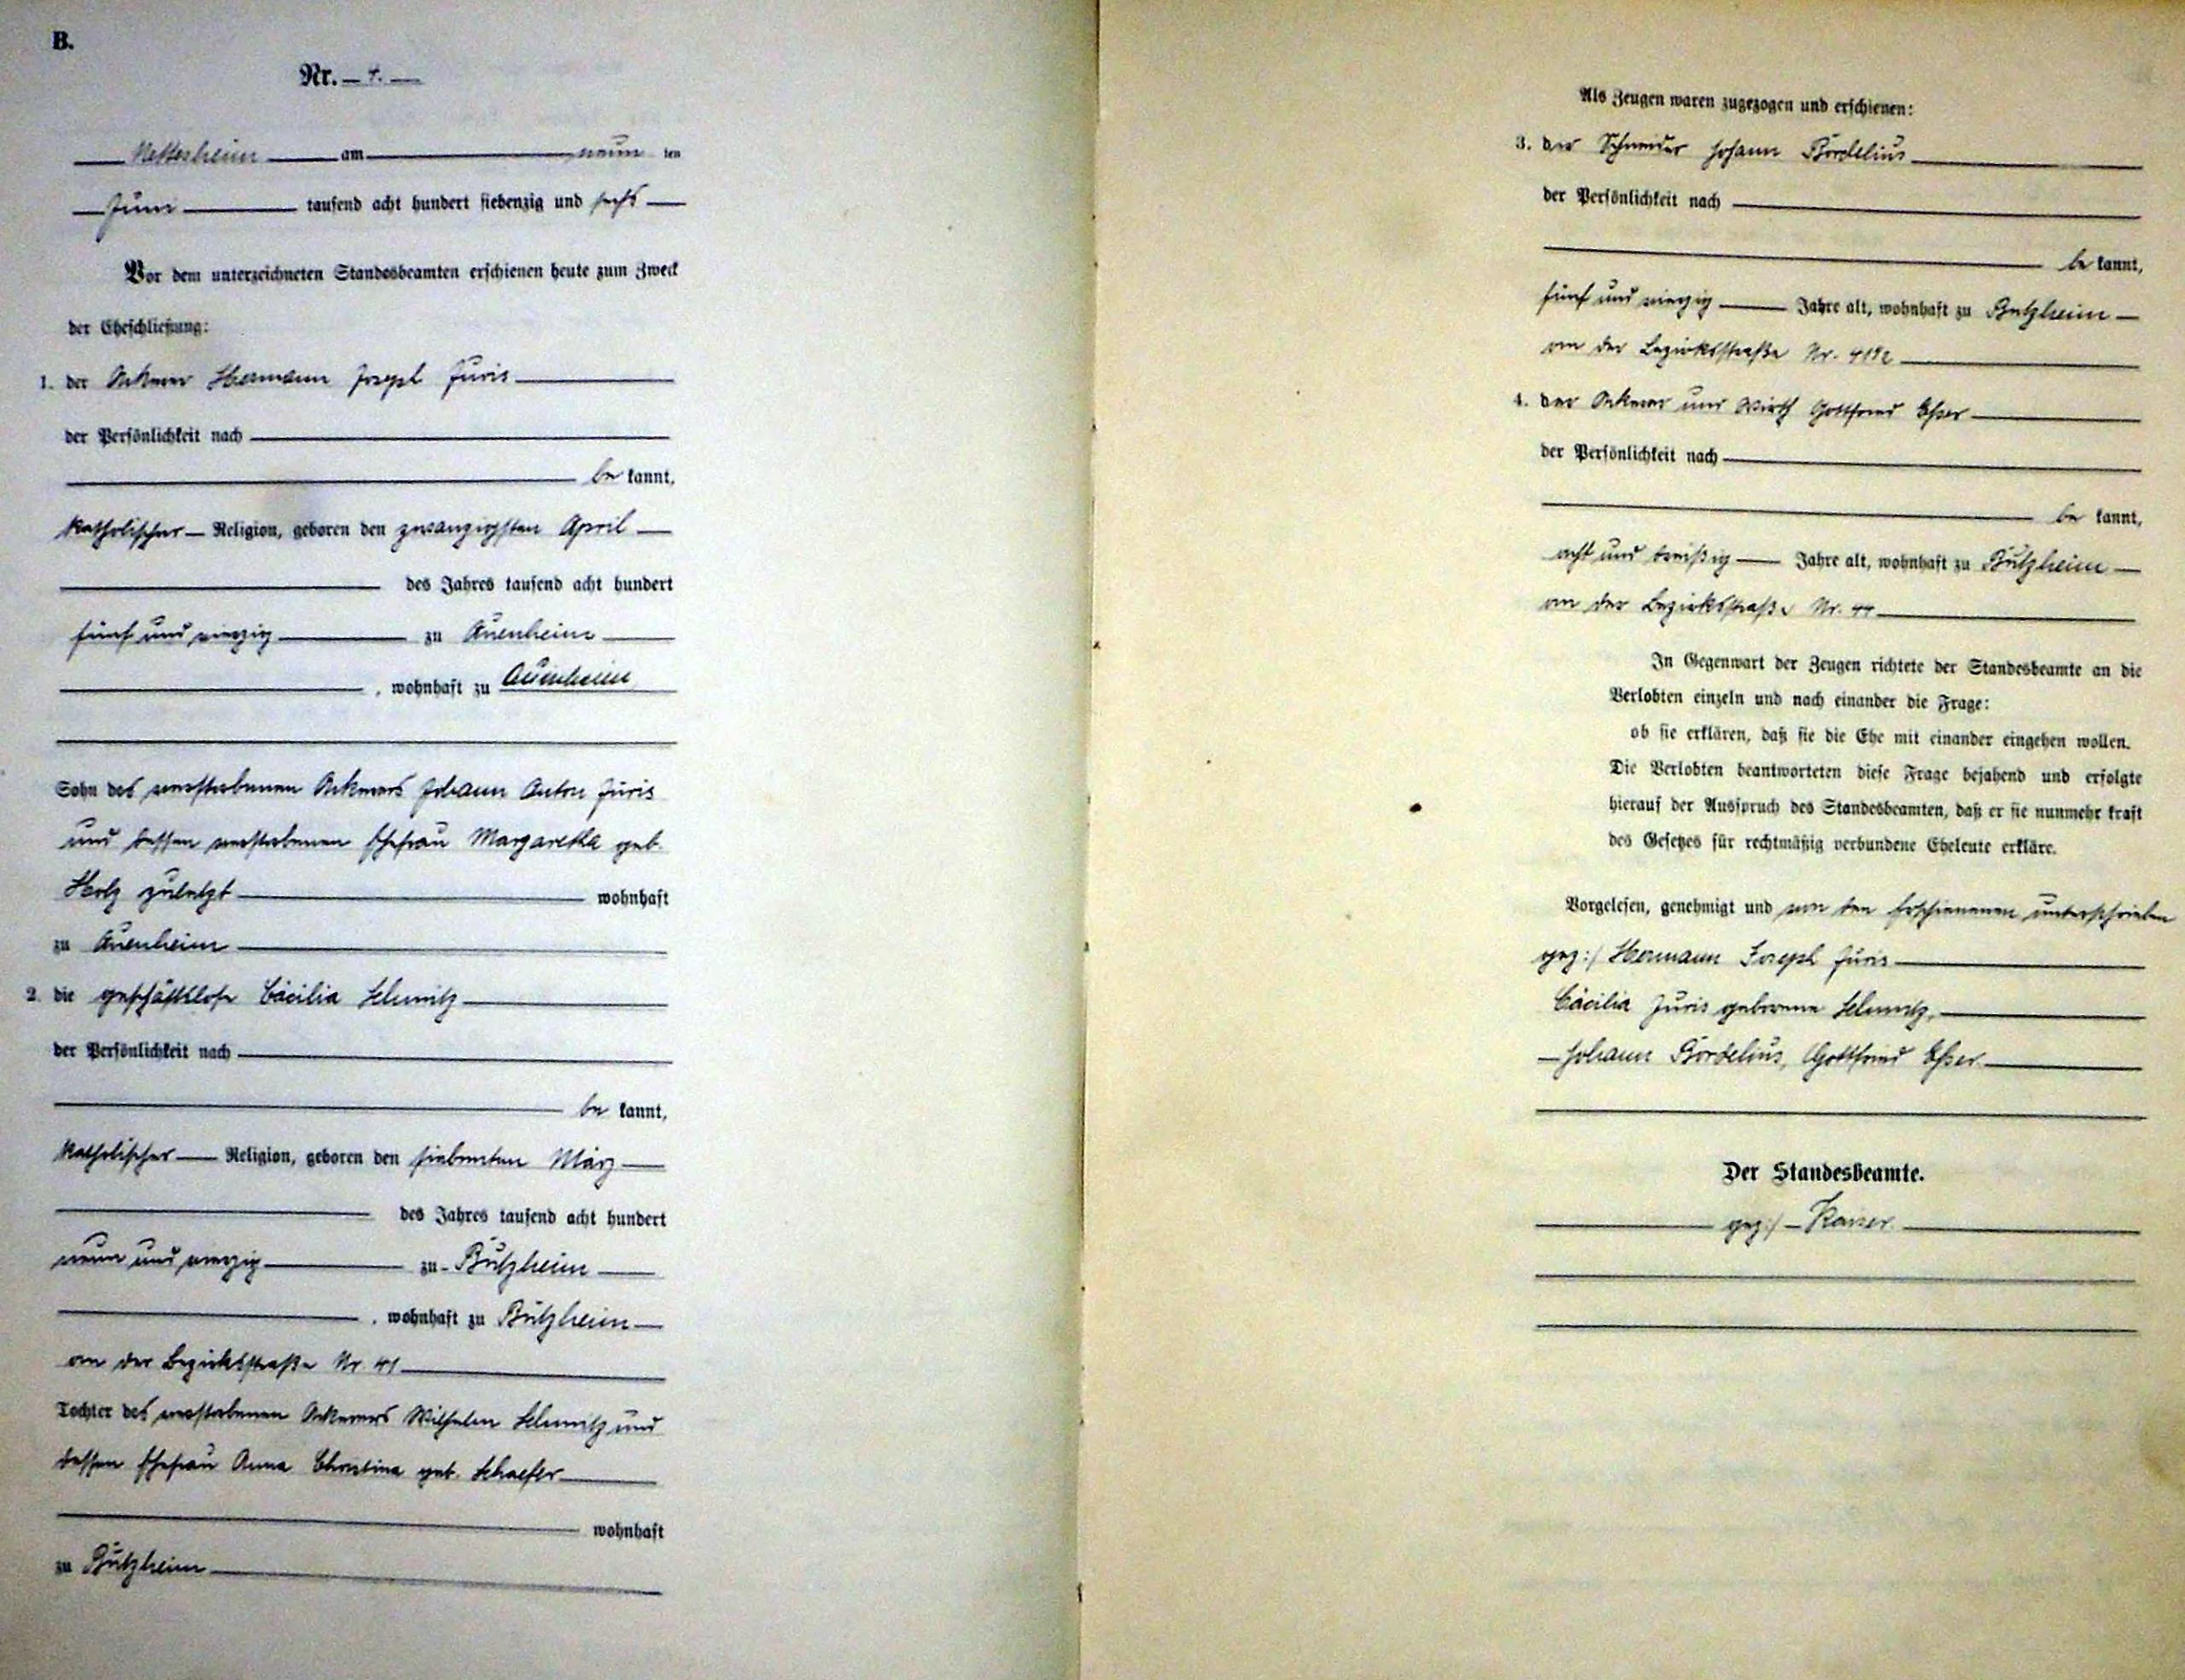 B.
Nr. 4.
Nettesheim am neun ten
Juni tausend acht hundert siebenzig und sechs
Vor dem unterzeichneten Standesbeamten erschienen heute zum Zweck
der Eheschließung:
1. der Ackerer Hermann Joseph Juris
der Persönlichkeit nach
be kannt,
katholischer Religion, geboren den zwanzigsten April
des Jahres tausend acht hundert
fünf und vierzig zu Auenheim
, wohnhaft zu Auenheim
Sohn des verstorbenen Ackerers Johann Anton Juris
und dessen verstorbenen Ehefrau Margaretha geb.
Holz zuletzt wohnhaft
zu Auenheim
2. die geschäftslose Cäcilia Schmitz
der Persönlichkeit nach
be kannt,
katholischer Religion, geboren den siebenten März
des Jahres tausend acht hundert
neun und vierzig zu Bützheim
, wohnhaft zu Bützheim
an der Bezirksstraße Nr. 41
Tochter des verstorbenen Ackerers Wilhelm Schmitz und
dessen Ehefrau Anna Christina geb. Schaefer
wohnhaft
zu Bützheim
Als Zeugen waren zugezogen und erschienen:
3. der Schneider Johann Bordelius
der Persönlichkeit nach
be kannt,
fünf und vierzig Jahre alt, wohnhaft zu Butzheim
an der Bezirksstraße Nr.
4. der Ackerer und Wirth Gottfried Esser
der Persönlichkeit nach
be kannt,
acht und dreißig Jahre alt, wohnhaft zu Bützheim
an der Bezirksstraße Nr. 44
In Gegenwart der Zeugen richtete der Standesbeamte an die
Verlobten einzeln und nach einander die Frage:
ob sie erklären, daß sie die Ehe mit einander eingehen wollen.
Die Verlobten beantworteten diese Frage bejahend und erfolgte
hierauf der Ausspruch des Standesbeamten, daß er sie nunmehr kraft
des Gesetzes für rechtmäßig verbundene Eheleute erkläre.
Vorgelesen, genehmigt und von den Erschienenen unterschrieben
gez:/ Hermann Joseph Juris
Cäcilia Juris geborene Schmitz,
Johann Bordelius, Gottfried Esser
Der Standesbeamte.
gez:/ Kaiser